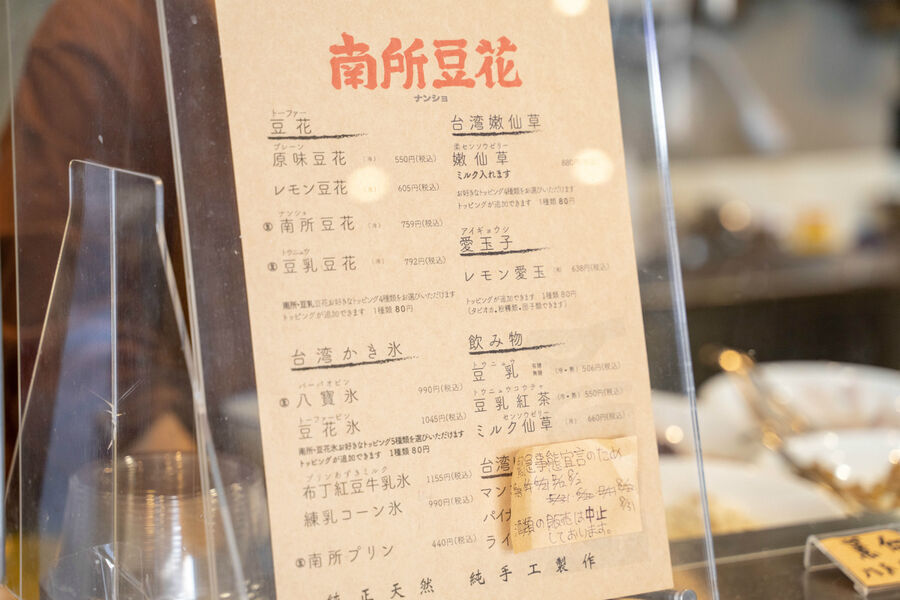 南所豆花
ナンショ
トーファー
豆花
プレーン
原味豆花 (冷) 550円(税込)
レモン豆花 605円(税込)
ナンショ
南所豆花 (冷) 759円(税込)
トウニュウ
豆乳豆花 (冷) 792円(税込)
南所・豆乳豆花お好きなトッピング4種類をお選びいただけます
トッピングが追加できます 1種類80円
台湾かき氷
パーパオピン
八寶氷 990円(税込)
トーファーピン
豆花氷 1045円(税込)
南所・豆花氷お好きなトッピング5種類を選びいただけます
トッピングが追加できます 1種類80円
プリンあずきミルク
布丁紅豆牛乳氷 1155円(税込)
練乳コーン氷 990円(税込)
南所プリン 440円(税込)
台湾嫩仙草
柔センソウゼリー
嫩仙草 880
ミルク入れます
お好きなトッピング4種類をお選びいただけます
トッピングが追加できます 1種類80円
アイギョウシ
愛玉子
レモン愛玉 (冷) 638円(税込)
トッピングが追加できます 1種類80円
飲み物
トウニュウ
豆乳 (冷・熱) 506円(税込)
トウニュウコウチャ
豆乳紅茶 (冷・熱) 550円(税込)
センソウゼリー
ミルク仙草 (冷) 660円(税込)
台湾
マン
パイ
ライ
緊急事態宣言のため
酒類の販売は中止
しております。
純正天然 純手工製作